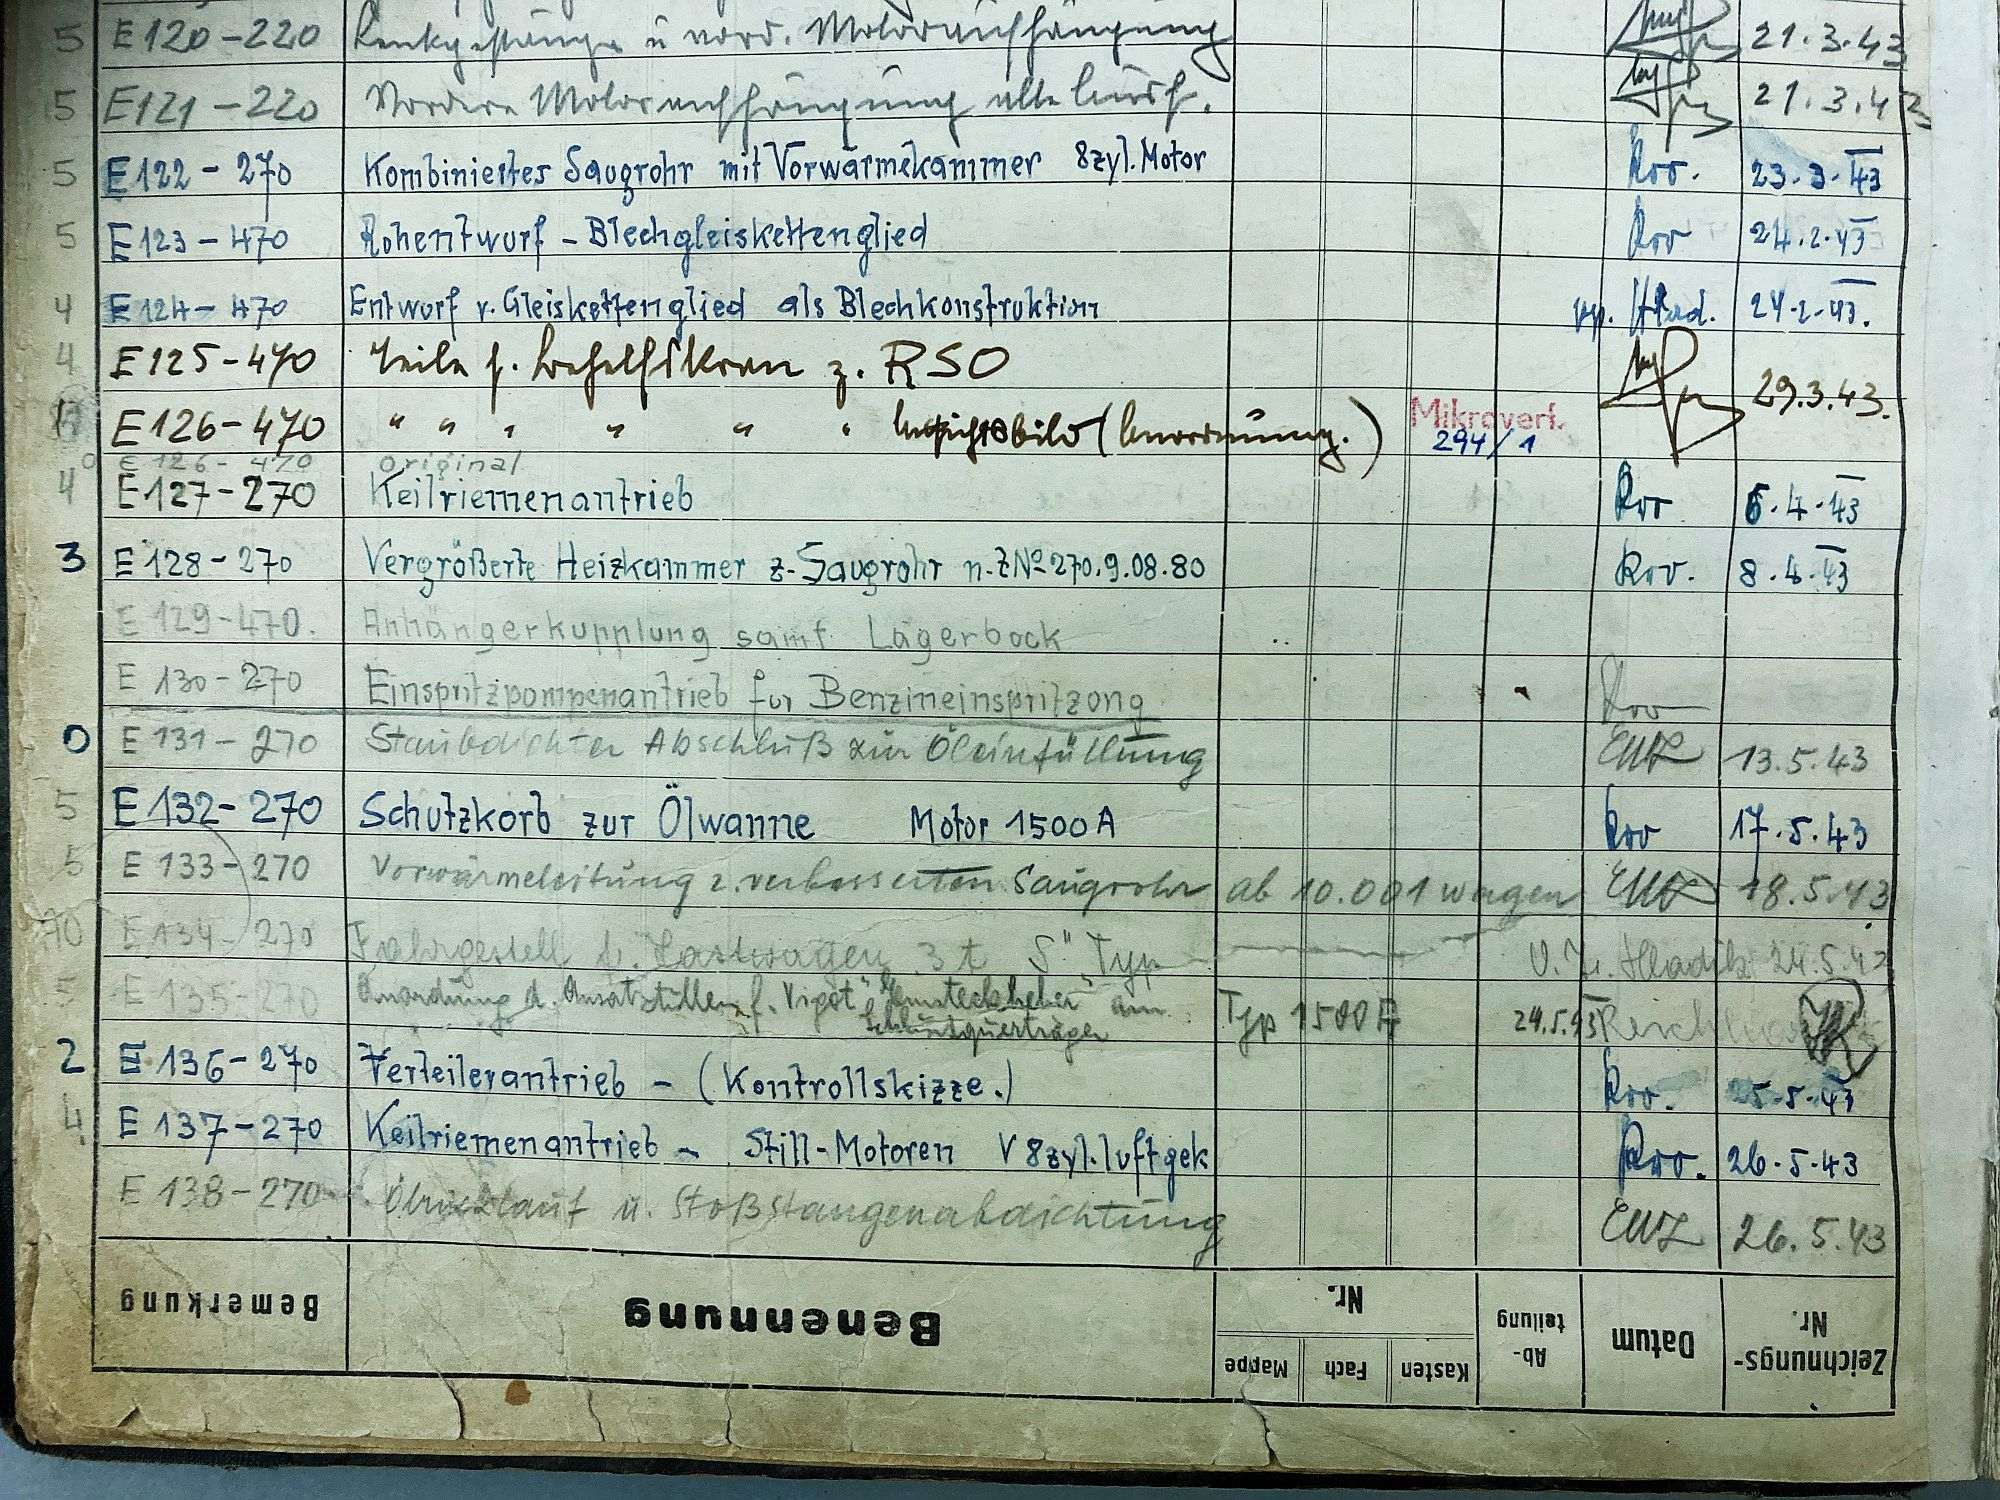 5 E 120-220 u vord. Motoraufhängung 21.3.43
5 E121-220 Vordere Motoraufhängung 21.3.43
5 E 122-270 Kombiniertes Saugrohr mit Vorwärmekammer 8zyl. Motor Rov. 23.3.43
5 E 123-470 Rohentwurf - Blechgleiskettenglied Rov 24.2.43
4 E 124-470 Entwurf v. Gleiskettenglied als Blechkonstruktion Hlad. 24.2.43.
4 E 125-470 Teile f. Behelfskran z. RSO 29.3.43.
E 126-470 " " " " " " Lichtbild (Anordnung.) Mikroverf. 294/1
E 126-470 original
4 E 127-270 Keilriemenantrieb Rov 6.4.43
3 E 128-270 Vergrößerte Heizkammer z. Saugrohr n. ZNo 270.9.08.80 Rov. 8.4.43
E 129-470. Anhängerkupplung samt Lagerbock
E 130-270 Einspritzpompenantrieb für Benzineinspritzong Rov
0 E 131-270 Staubdichter Abschluß zur Öleinfüllung 13.5.43
5 E 132-270 Schutzkorb zur Ölwanne Motor 1500A Rov 17.5.43
5 E 133-270 Vorwärmeleitung z. verbesserten Saugrohr ab 10.001 wagen 18.5.43
10 E 134-270 Fahrgestell f. Lastwagen 3 t "S" Typ Hladik 24.5.43
5 E 135-270 Anordnung d. Ansatzstützen f. "Vigot" am Typ 1500A 24.5.43
Schlußquerträger
2 E 136-270 Verteilerantrieb - (Kontrollskizze.) Rov. 25.5.43
4 E 137-270 Keilriemenantrieb - Still-Motoren V 8zyl. luftgek Rov. 26.5.43
E 138-270 Ölrücklauf u. Stoßstangenabdichtung 26.5.43
Bemerkung Benennung Nr. Mappe Fach Kasten Ab-teilung Datum Zeichnungs-Nr.